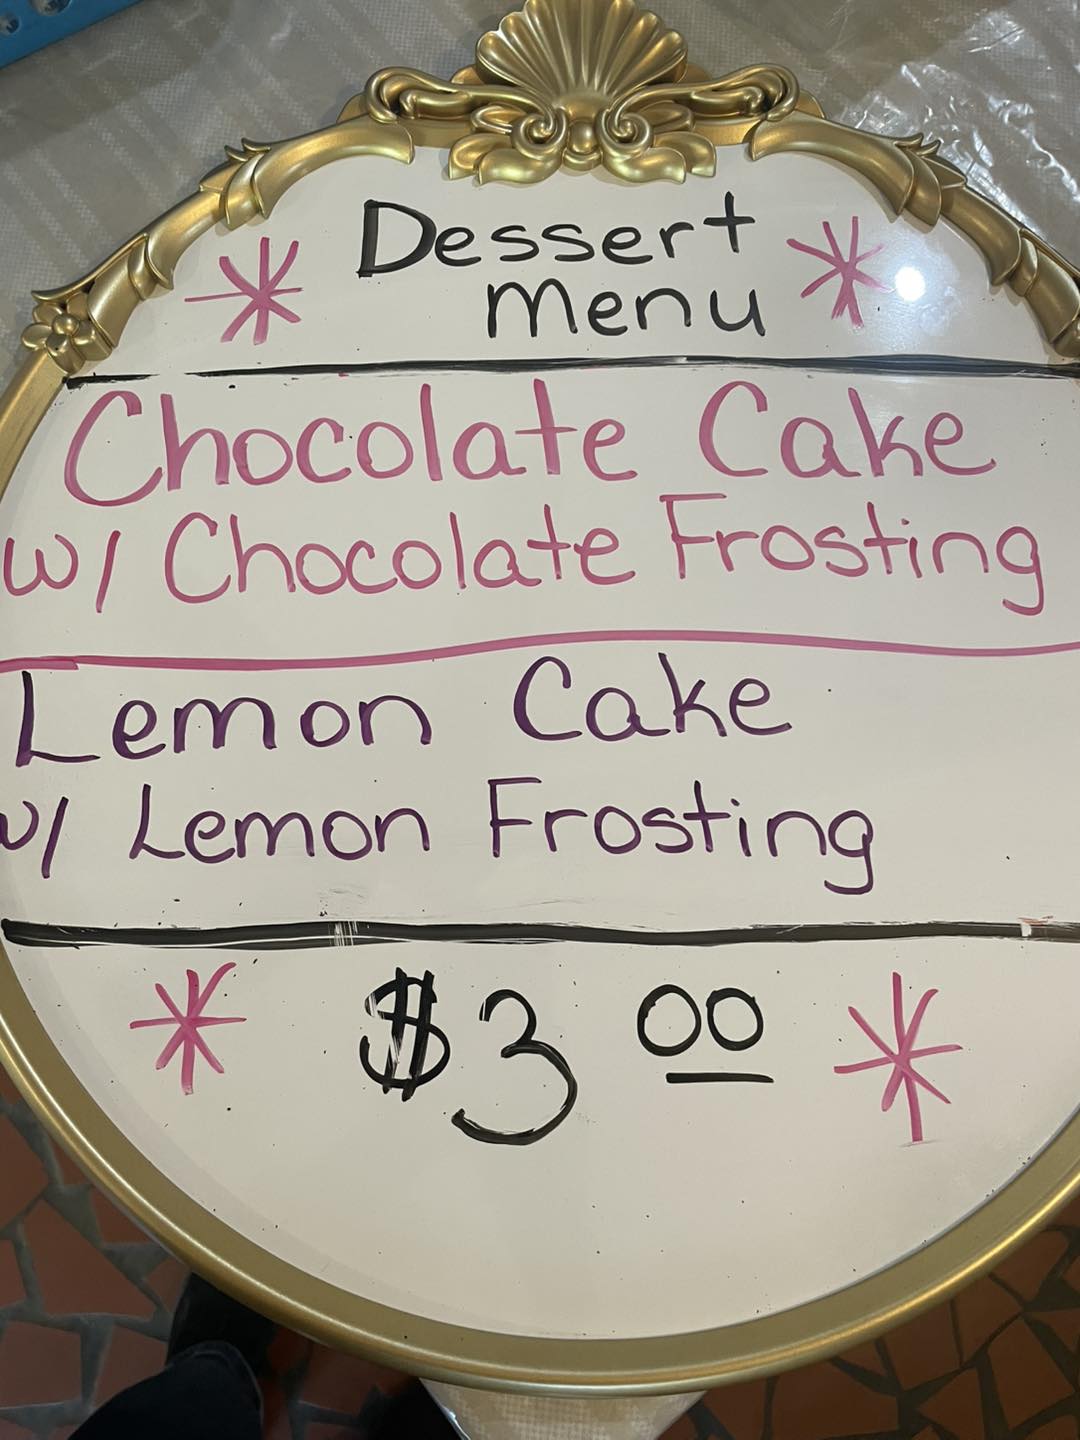 * Dessert *
Menu
Chocolate Cake
w/ Chocolate Frosting
Lemon Cake
w/ Lemon Frosting
* $3 00 *